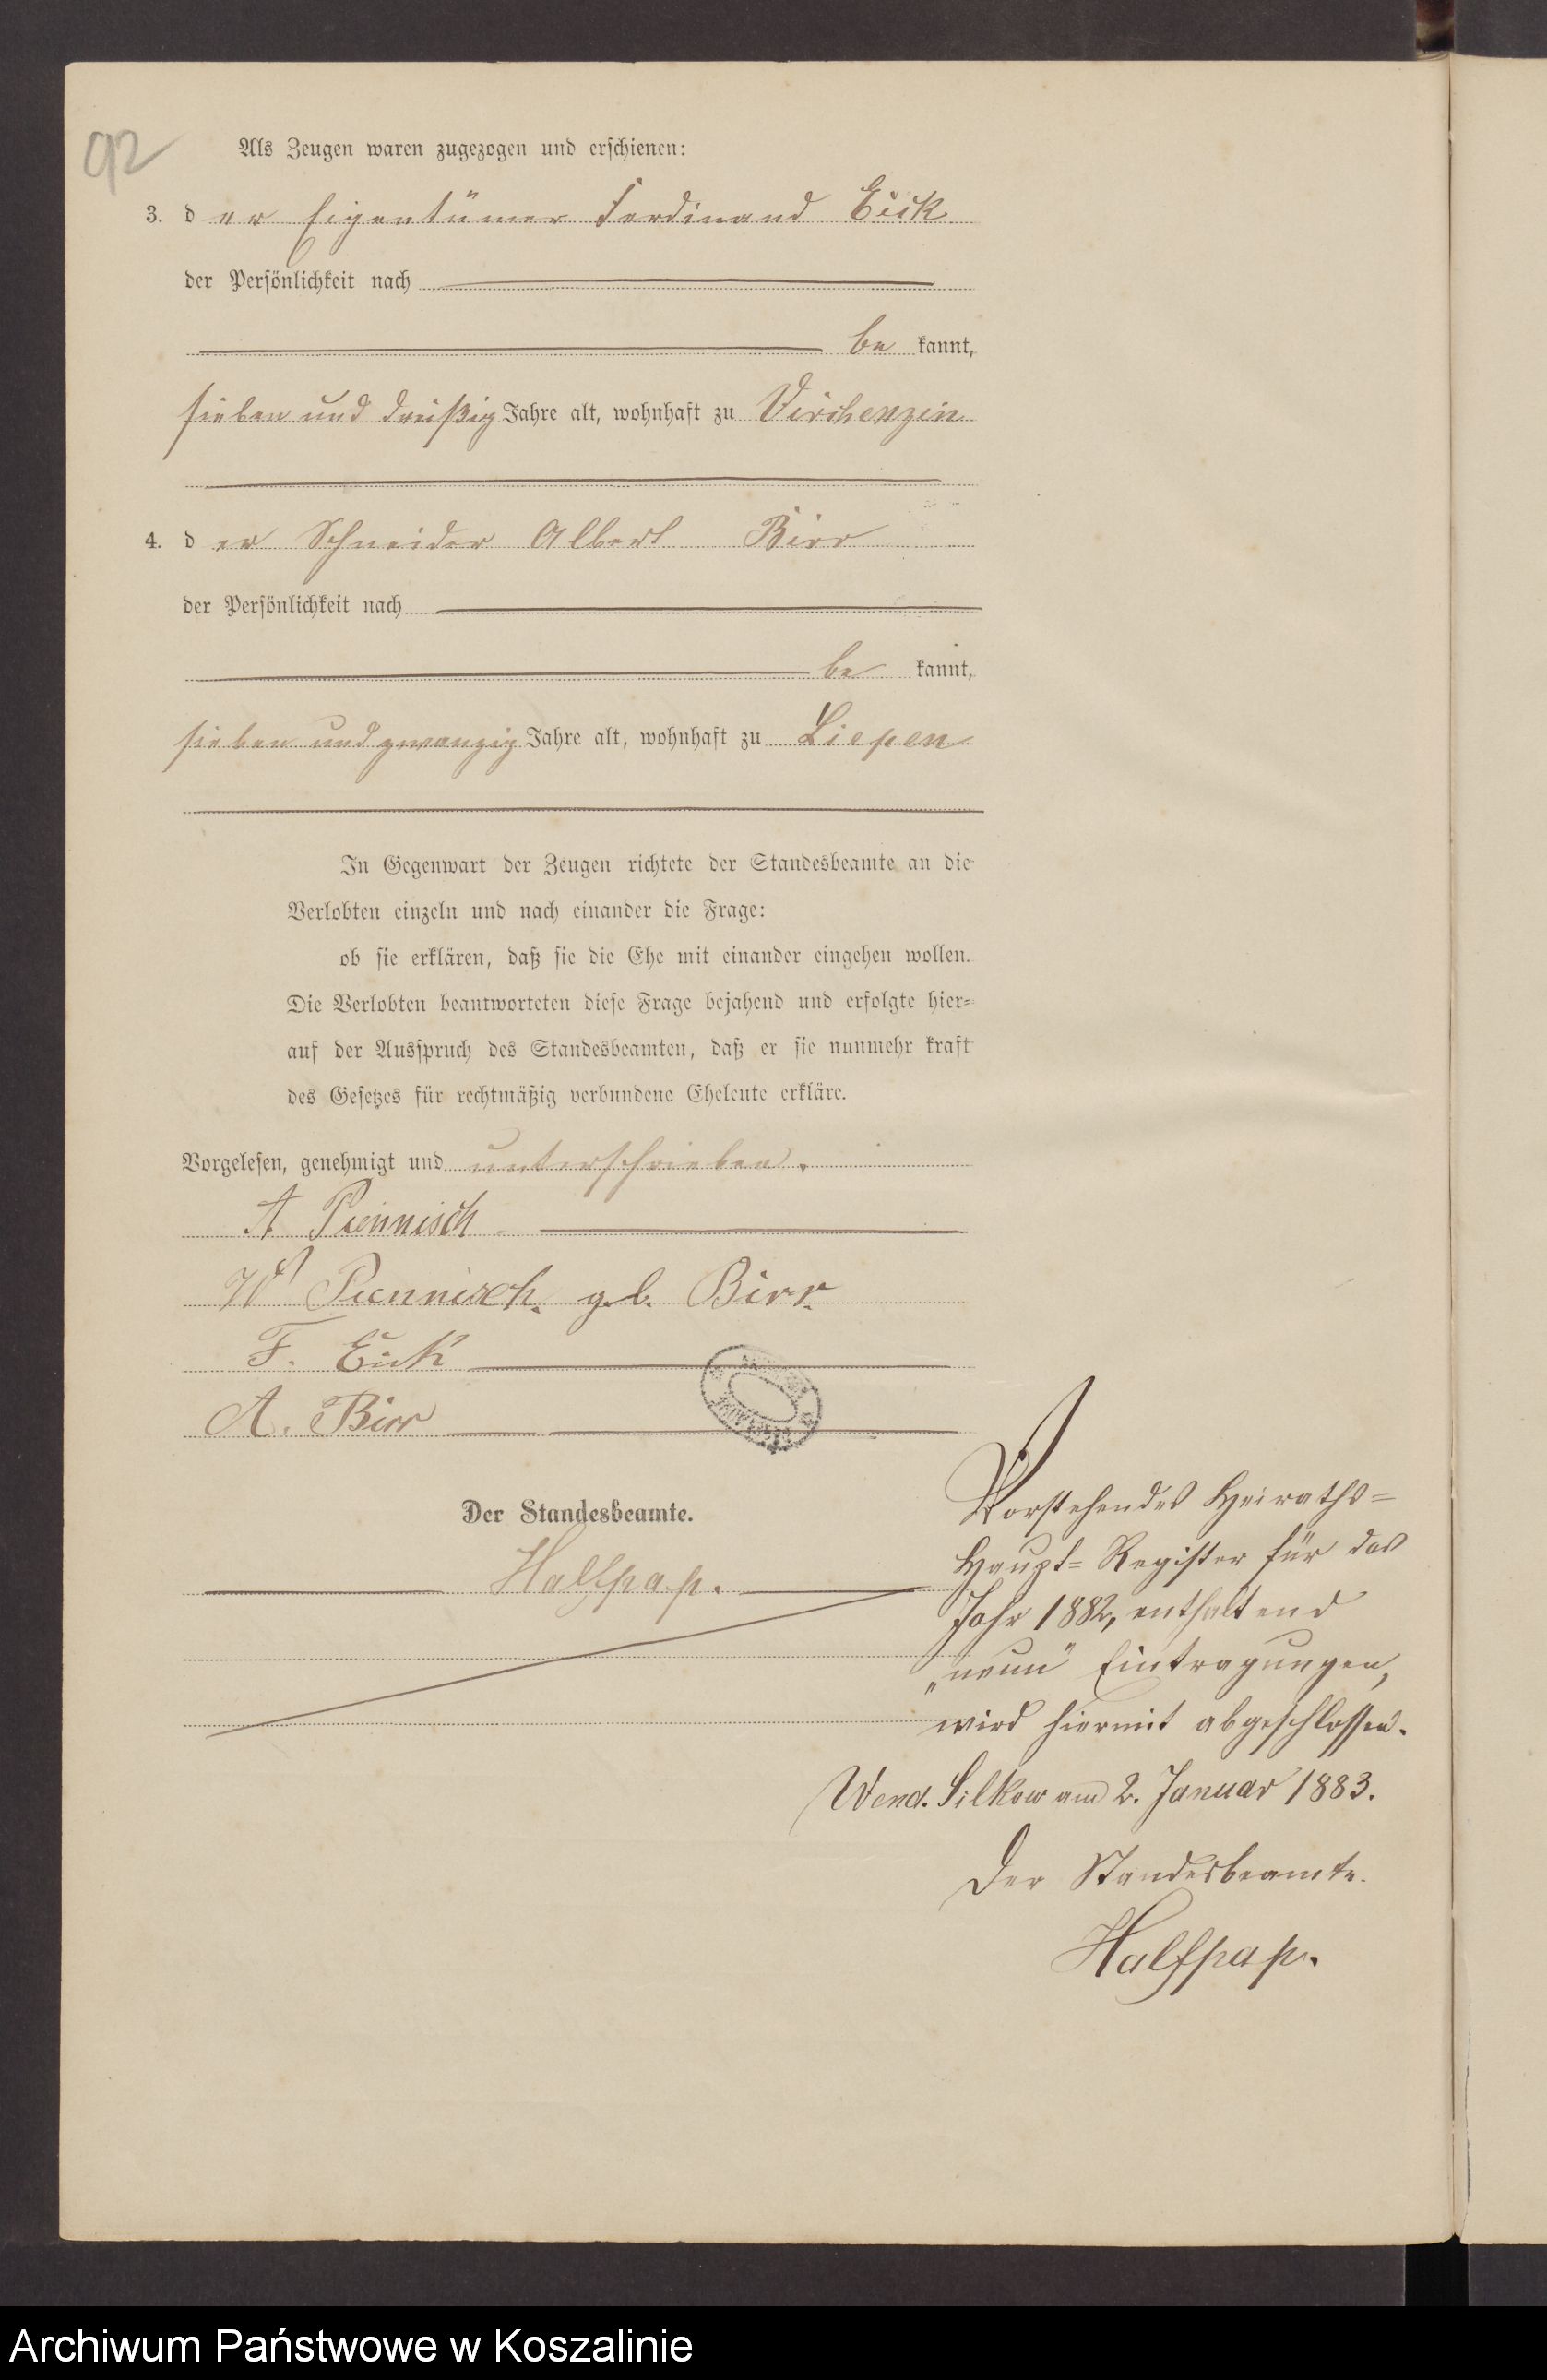 92
Als Zeugen waren zugezogen und erschienen:
3. d er Eigentümer Ferdinand Eick
der Persönlichkeit nach
be kannt,
sieben und dreißig Jahre alt, wohnhaft zu Virchenzin
4. d er Schneider Albert Birr
der Persönlichkeit nach
be kannt,
sieben und zwanzig Jahre alt, wohnhaft zu Liepen
In Gegenwart der Zeugen richtete der Standesbeamte an die
Verlobten einzeln und nach einander die Frage:
ob sie erklären, daß sie die Ehe mit einander eingehen wollen.
Die Verlobten beantworteten diese Frage bejahend und erfolgte hier-
auf der Ausspruch des Standesbeamten, daß er sie nunmehr kraft
des Gesetzes für rechtmäßig verbundene Eheleute erkläre.
Vorgelesen, genehmigt und unterschrieben.
A Piennisch
W Piennisch. geb. Birr.
F. Eick
A. Birr
Der Standesbeamte.
Halfpap.
Vorstehendes Heiraths=
Haupt=Register für das
Jahr 1882, enthaltend
„neun" Eintragungen,
wird hiermit abgeschlossen.
Wend. Silkow am 2. Januar 1883.
Der Standesbeamte.
Halfpap.
Archiwum Państwowe w Koszalinie